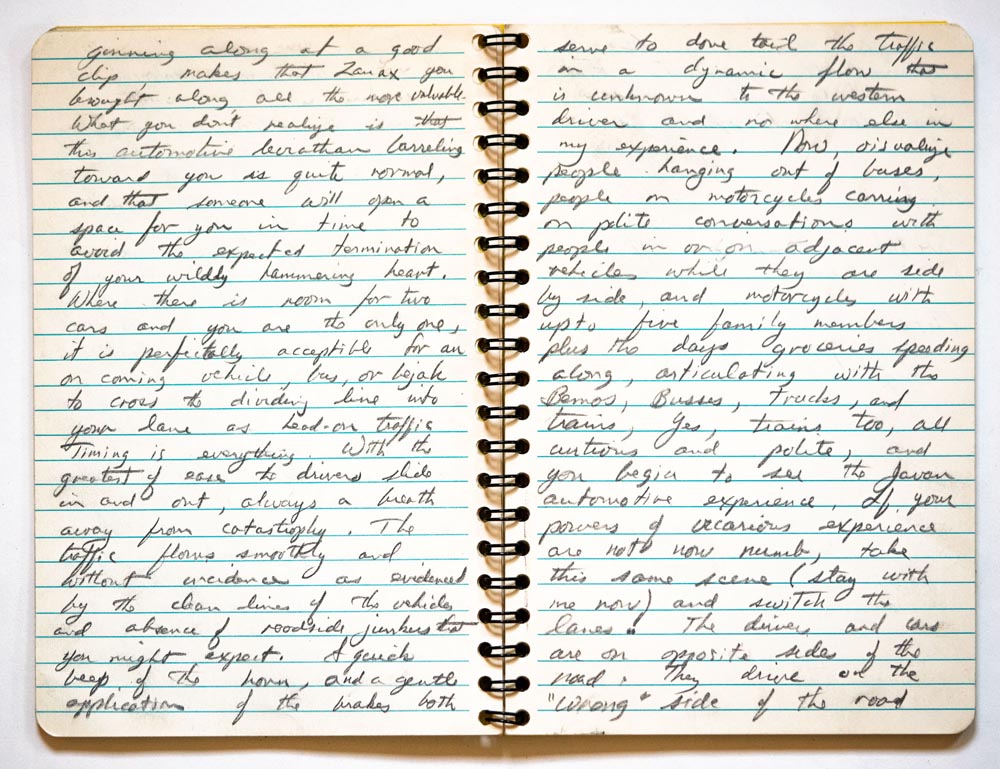 along at a good
clip makes that Zanax you
brought along all the more valuable.
What you don't realize is that
this automotive leviathan barreling
toward you is quite normal,
and that someone will open a
space for you in time to
avoid the expected termination
of your wildly hammering heart.
Where there is room for two
cars and you are the only one,
it is perfectally acceptible for an
on coming vehicle, bus, or bejak
to cross the dividing line into
your lane as head-on traffic
Timing is everything. With the
greatest of ease the drivers slide
in and out, always a breath
away from catastrophy. The
traffic flows smoothly and
without incidence as evidenced
by the clean lines of the vehicles
and absence of roadside junkers that
you might expect. A quick
beep of the horn, and a gentle
application of the brakes both
serve to dove tail the traffic
in a dynamic flow that
is unknown to the western
driver and no where else in
my experience. Now, visualize
people hanging out of buses,
people on motorcycles carring
on polite conversations with
people in or on adjacent
vehicles while they are side
by side, and motorcycles with
upto five family members
plus the days groceries speeding
along, articulating with the
Bemos, Busses, Trucks, and
trains, Yes, trains too, all
cutious and polite, and
you begin to see the Javan
automotive experience. If your
powers of vicarious experience
are not now numb, take
this same scene (stay with
me now) and switch the
lanes. The drivers and cars
are on opposite sides of the
road. They drive on the
"wrong" side of the road